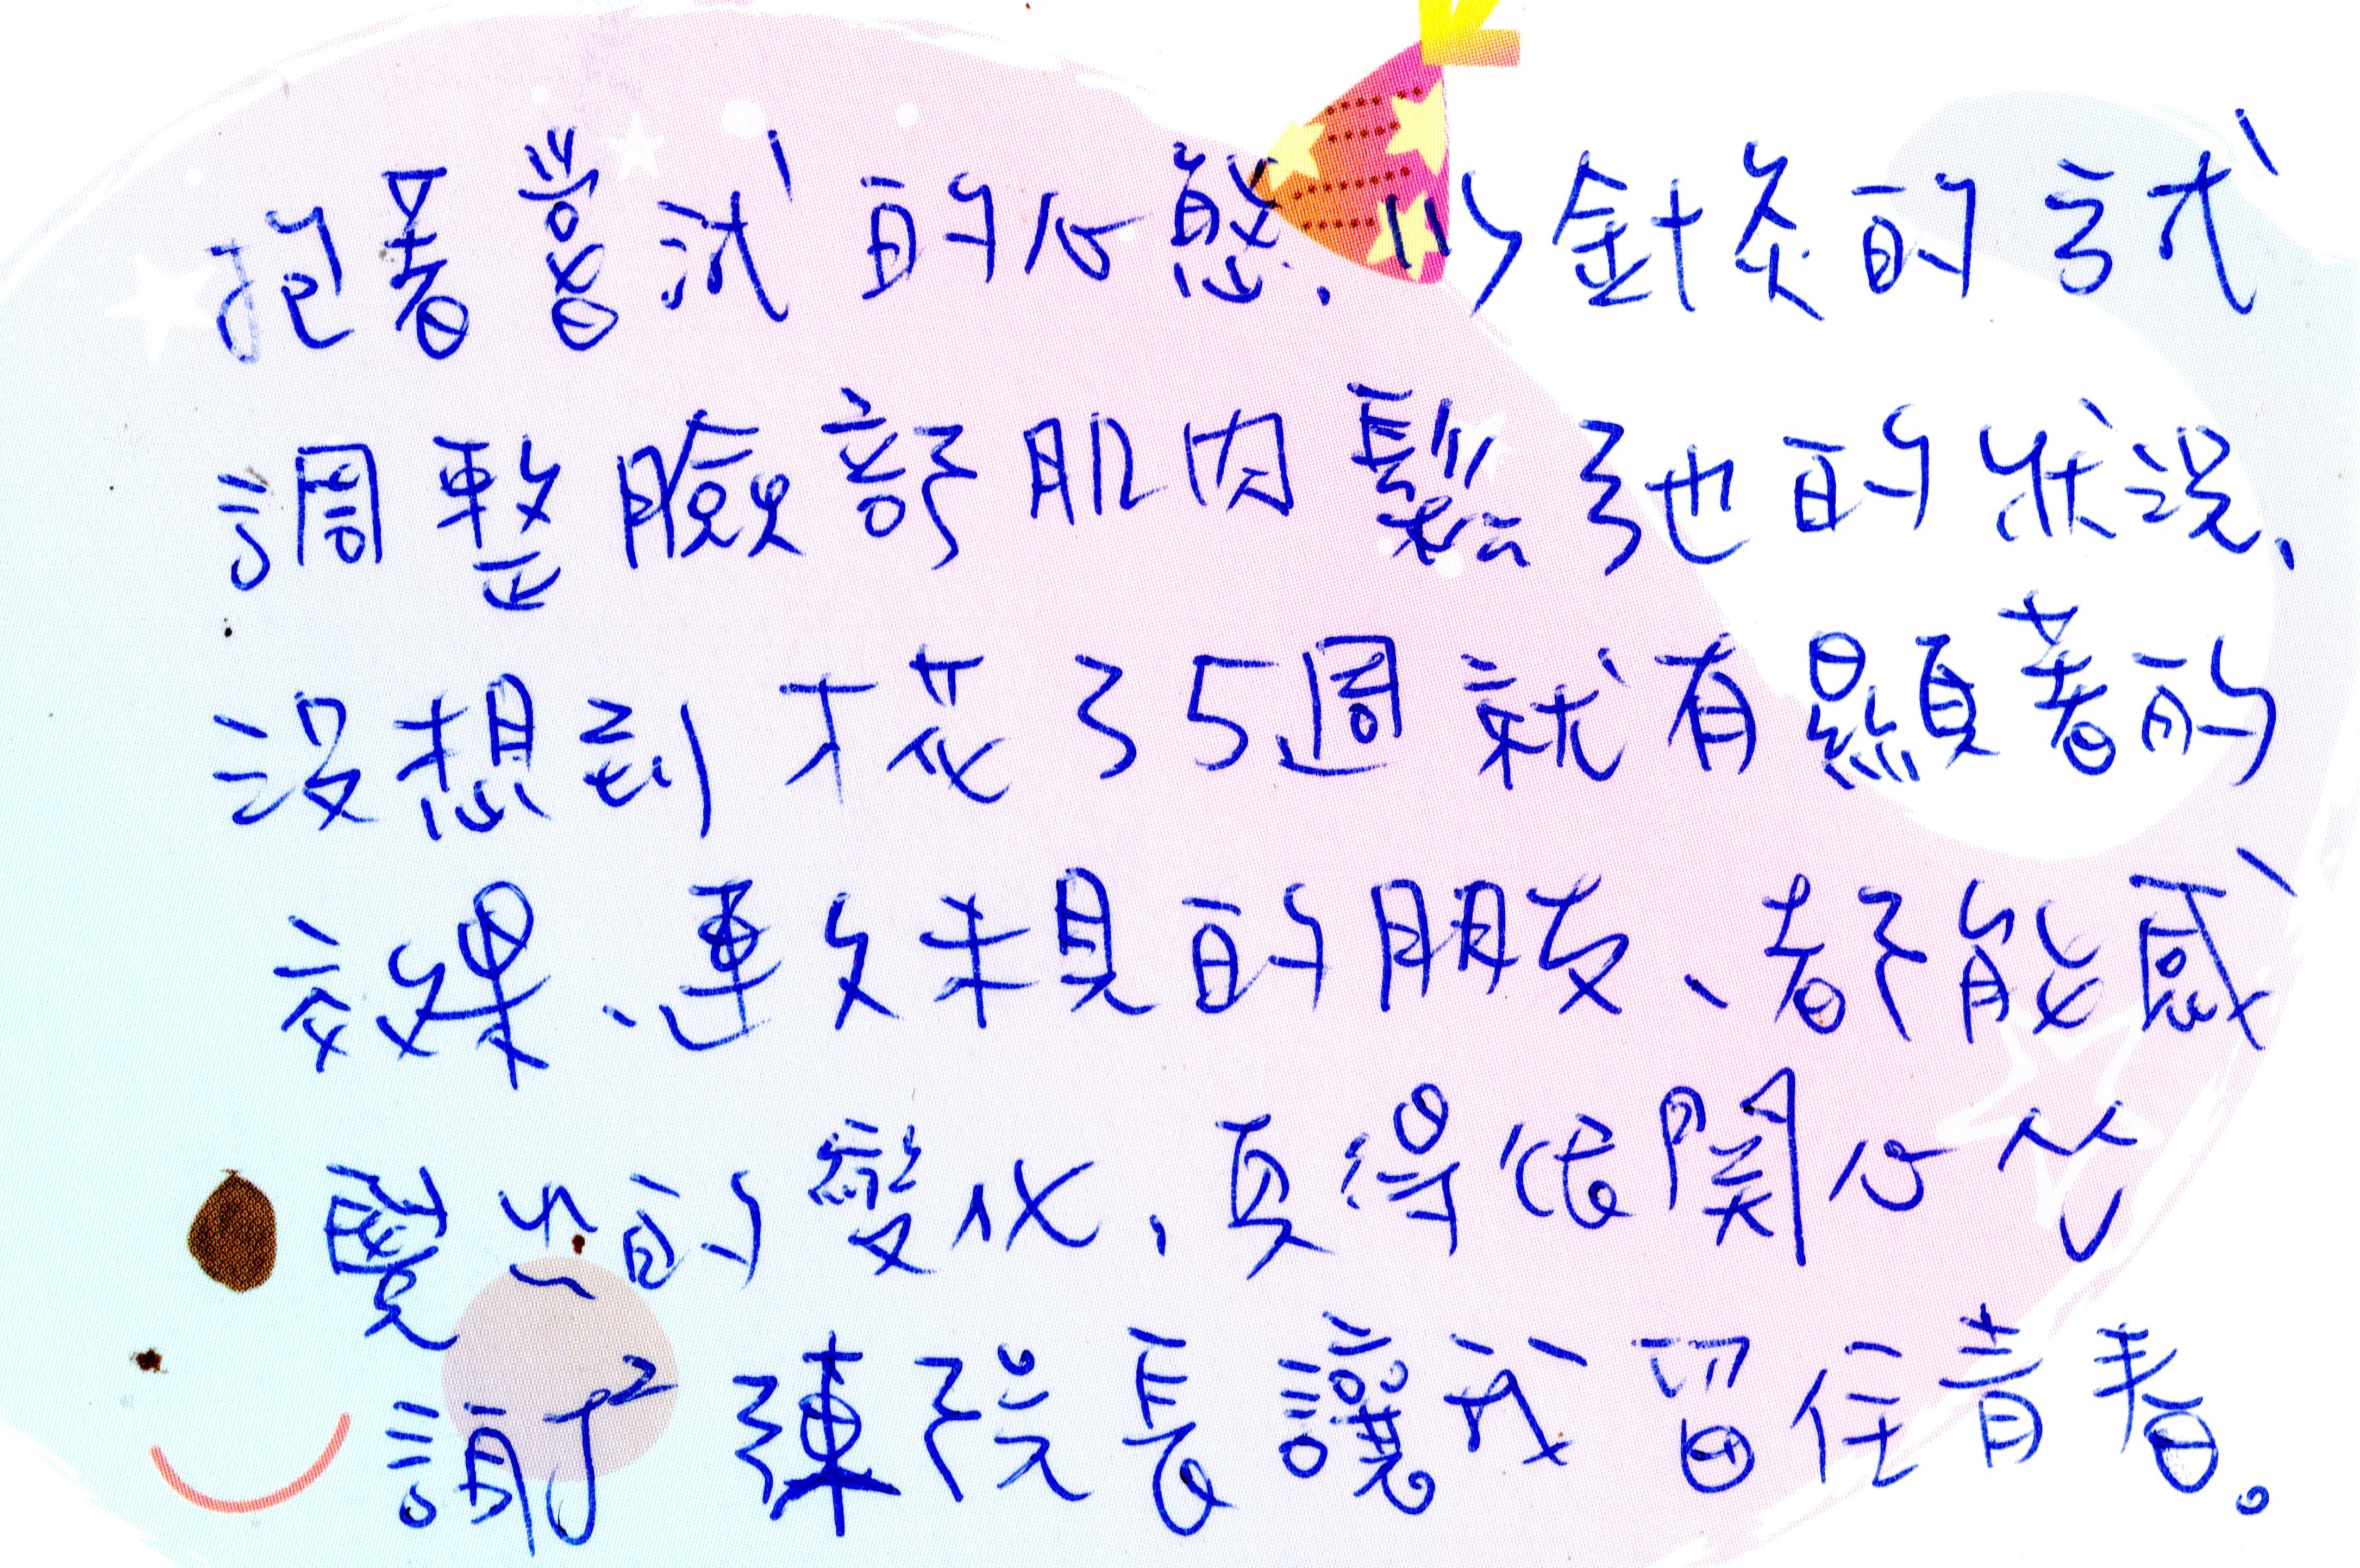 抱著嘗試的心態,以針灸的方式
調整臉部肌肉鬆弛的狀況、
沒想到才花了5週就有顯著的
效果、連久未見的朋友、都能感
覺出的變化,真得很開心^^
謝² 陳院長讓我留住青春。